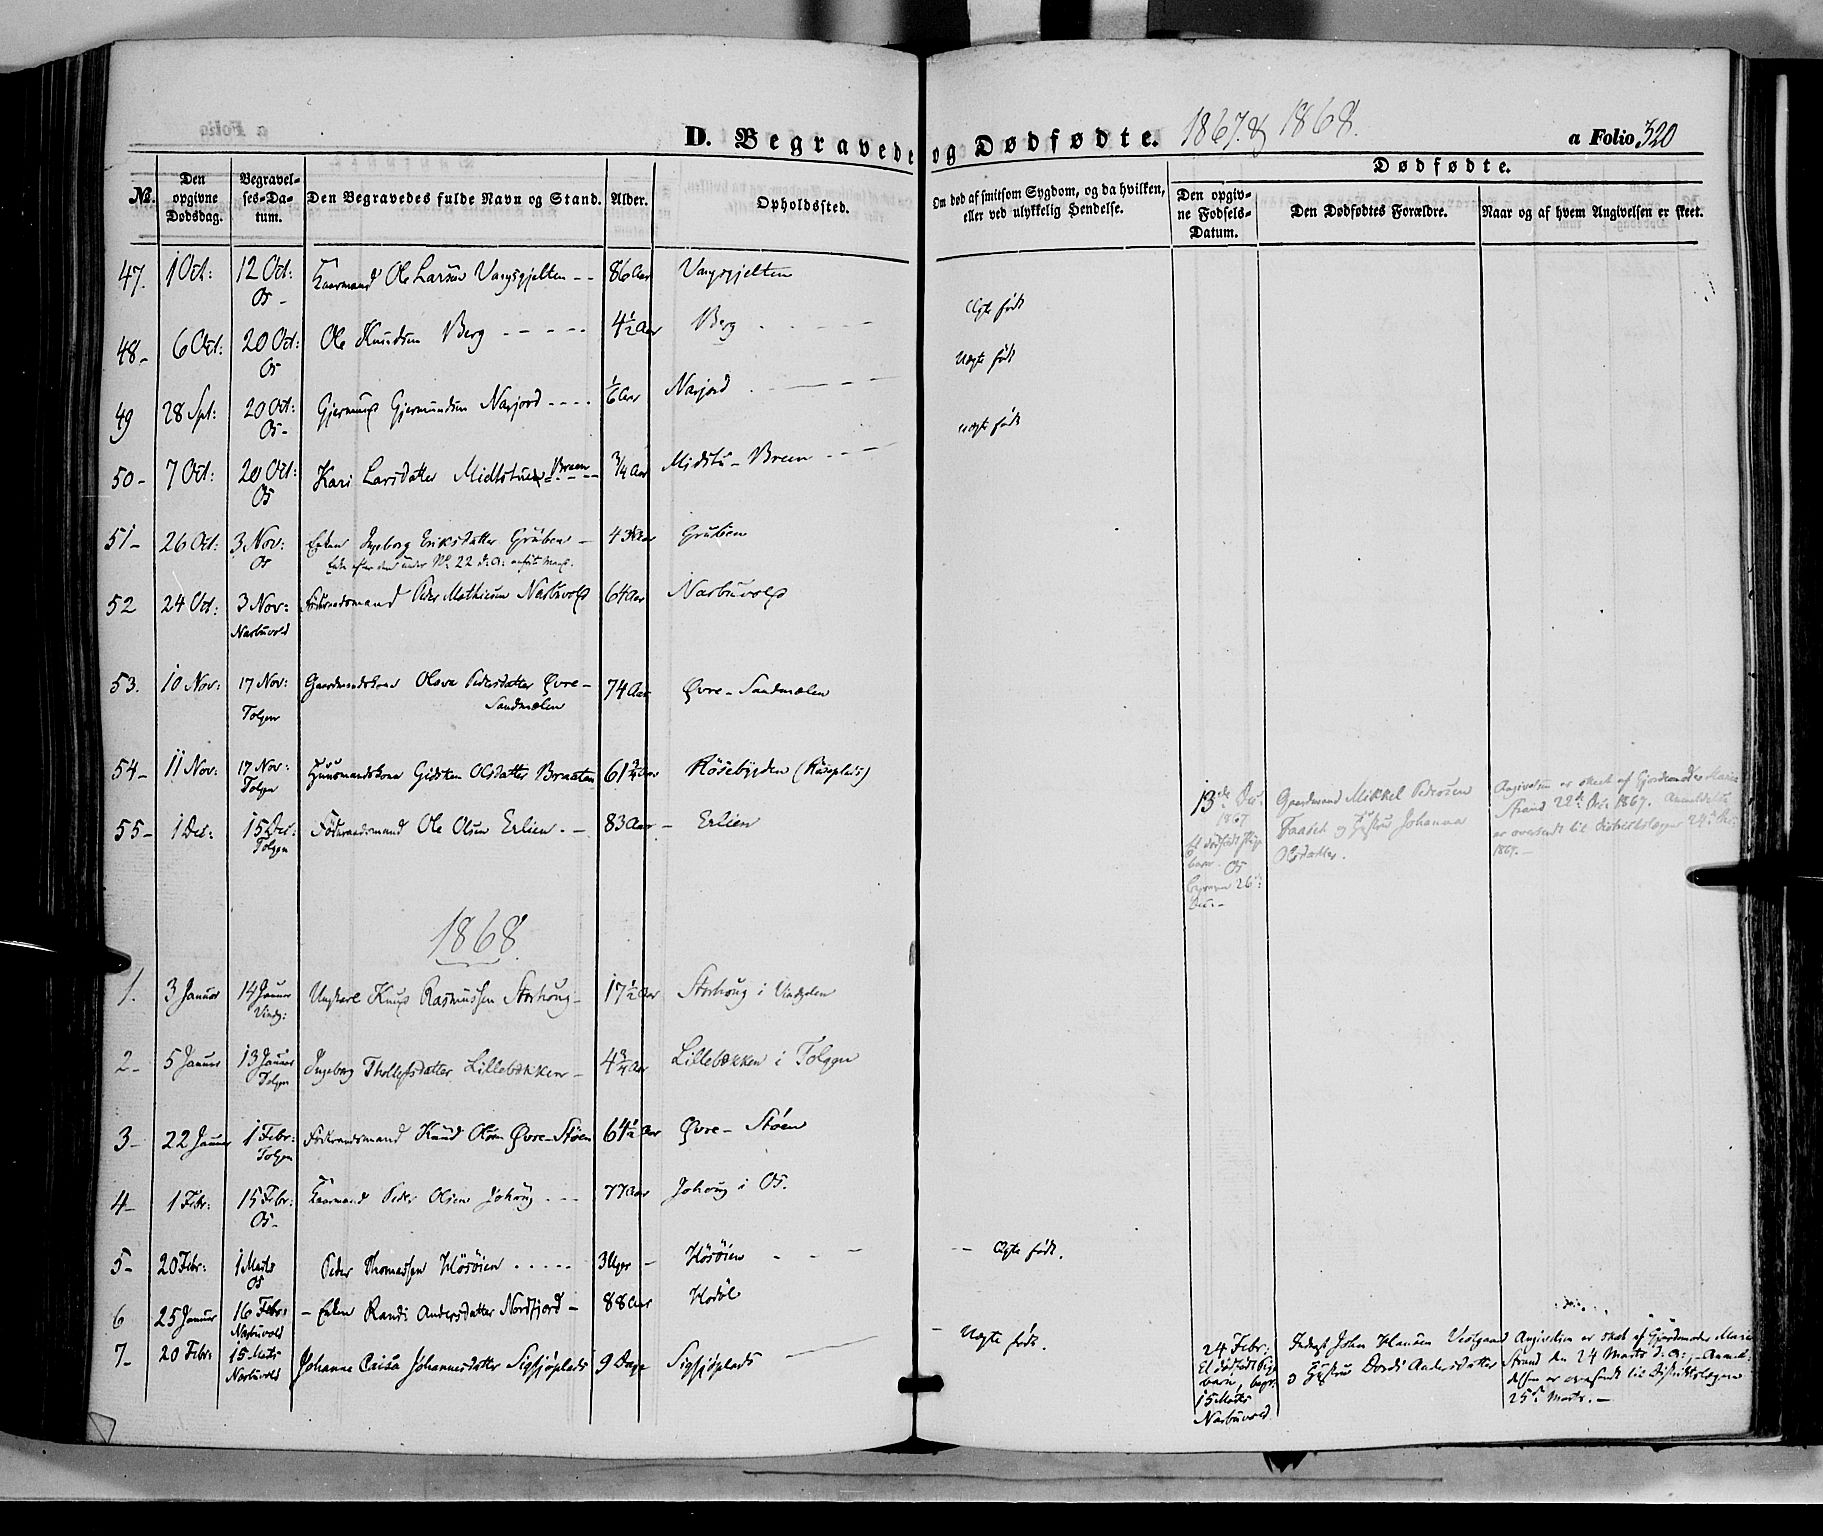 D. Begravede og Dødfødte. 1867 & 1868. a Folio 320
No. Den opgivne Dødsdag. Begravelses-Datum. Den Begravedes fulde Navn og Stand. Alder. Opholdssted. Om død af smitsom Sygdom, og da hvilken, eller ved ulykkelig Hendelse. Dødfødte.
Den opgivne Fødsels-Datum. Den Dødfødtes Forældre. Naar og af hvem Angivelsen er skeet.
47. 1 Oct: 12 Oct: Os - Kaarmand Ole Larsen Vangsgjelten -- 86 Aar Vangsgjelten
48- 6 Oct: 20 Oct: Os Ole Knudsen Berg ----- 4½ Aar Berg Ægte født
49 28 Spt: 20 Oct: Os- Gjermund Gjermundsen Narjord ---- 1/6 Aar Narjord Uægte født
50- 7 Oct: 20 Oct: Os Kari Larsdatter Midtstuen Breen ¾ Aar Midstu-Breen --- uægte født
51- 26 Oct: 3 Nov: Os Enken Ingeborg Eriksdatter Gruben - Gruben
Enke efter den under No 22 d: A: anførte Mand.
52 24 Oct: 3 Nov: Narbuvold Føderaadsmand Peder Mathiesen Narbuvold 64 Aar Narbuvold
53. 10 Nov: 17 Nov: Tolgen Gaardmandskone Olava Pedersdatter Øvre-Sandmælen 74 Aar Øvre-Sandmælen
54- 11 Nov: 17 Nov: Tolgen Huusmandskone Gidsken Olsdatter Braaten 61¾ Aar Røsebygden (Huusplads)
55- 1 Dec: 15 Dec: Tolgen Føderaadsmand Ole Olsen Erlien. - 83 Aar - Erlien
13de Dec: 1867 Et dødfødt Pigebarn. Os Begraven 26de Dec:- Gaardmand Mikkel Pedersen Faaset og Hustru Johanna Olsdatter. Angivelsen er skeet af Gjordemoder Marie Strand 22de Dec: 1867. Anmeldelsen er oversendt til Distriktslægen 24de Dec: 1867.-
1868.
1. 3 Januar 14 Januar Vindg: Ungkarl Knud Rasmussen Storhoug - 17½ Aar Storhoug i Vindgelen
2- 5 Januar 13 Januar Tolgen Ingeborg Thollefsdatter Lillebækken - 4¾ Aar Lillebækken i Tolgen
3- 22 Januar 1 Febr: Tolgen Føderaadsmand Knud Olsen Øvre-Støen 64½ Aar Øvre-Støen
4- 1 Febr: 15 Febr: Os- Kaarmand Peder Olsen Johoug --- 77 Aar Johoug i Os.
5- 20 Febr: 1 Marts Os Peder Thomassen Høsøien ----- 3 Uger - Høsøien --- Ægte født.
6 25 Januar 16 Febr: Narbuvold - Enken Randi Andersdatter Nordfjord - 88 Aar Hodøl
7- 20 Febr: 15 Marts Narbuvold Johanne Caisa Johannesdatter Sigsjøplads 9 Dage Sigsjøplads - Uægte født.
24 Febr: Et dødfødt Pigebarn, begr: 15 Marts Narbuvold Inderst John Hansen Vestgaard o Hustru Dordi Andersdatter Angivelsen er skeet af Gjordemoder Marie Strand den 24 Marts d: A:, - Anmeldelsen er oversendt til Distriktslægen 25de Marts. -